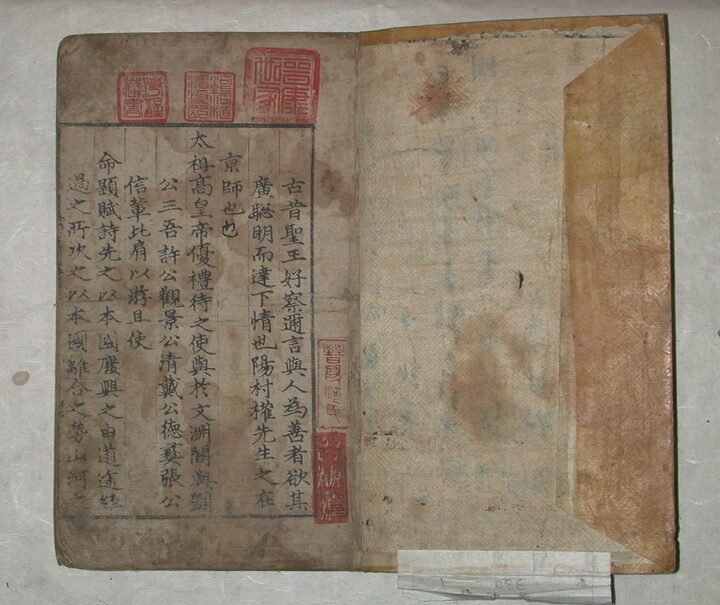 古昔聖王好察邇言與人為善者欲其
廣聰明而達下情也陽村權先生之在
京師也
太祖高皇帝優禮待之使與於文淵閣與劉
公三吾許公觀景公清戴公德彝張公
信輩比肩以游且使
命題賦詩先之以本國廢興之由道途經
過之所次之以本國離合之勢山河之